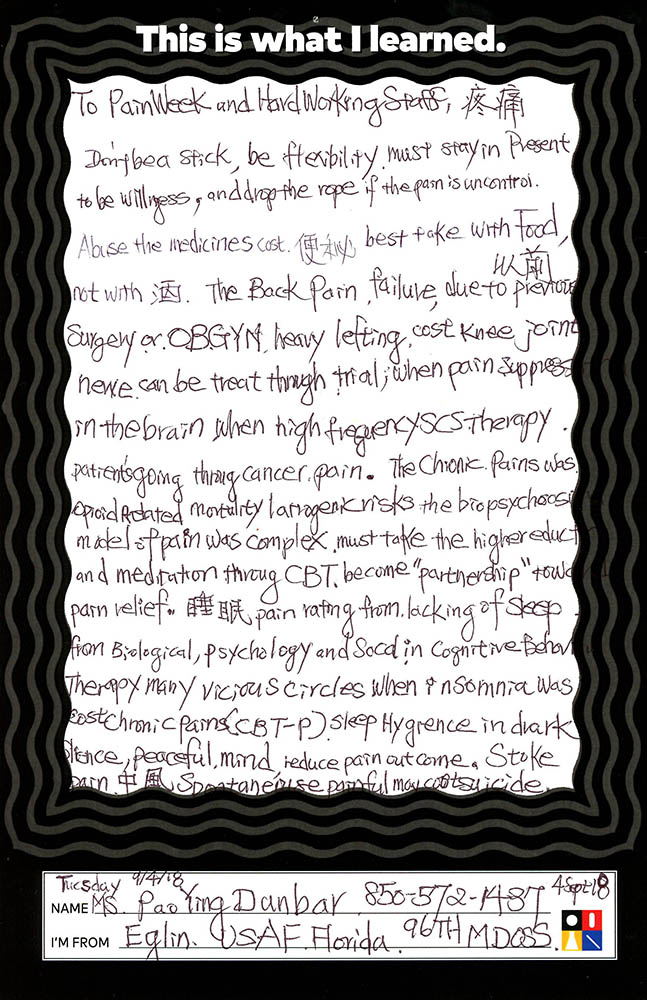 This is what I learned.
To PainWeek and HardWorking Staffs, 疼痛
Don't be a stick, be flexibility must stay in Present
to be willigess, and drop the rope if the pain is uncontrol.
Abuse the medicines cost. 便秘 best take with Food,
以前
not with 酒. The Back Pain failure, due to previous
Surgery or OBGYN, heavy lefting, cost Knee joint
nerve can be treat through trial; when pain suppress
in the brain when high frequency SCS-therapy.
patients going throug cancer pain. The Chronic Pains was
opioid Related mortality Iatrogenic risks the biopsychoso
model of pain was complex must take the higher educt
and meditation throug CBT. become "partnership" towa
pain relief. 睡眠 pain rating from lacking of Sleep
from Biological, psychology and Socal in Cognitive Behav
Therapy many vicious circles when insomnia was
cost Chronic Pains (CBT-P) sleep Hygrence in drark
slience, peaceful mind reduce pain outcome. Stoke
pain 中風 Spontaneouse painful may cost suicide.
Tuesday 9/4/18 4 Sept 18
NAME MS. Pao Ying Dunbar 850-572-1487
I'M FROM Eglin. USAF. Florida. 96TH MDGSS.